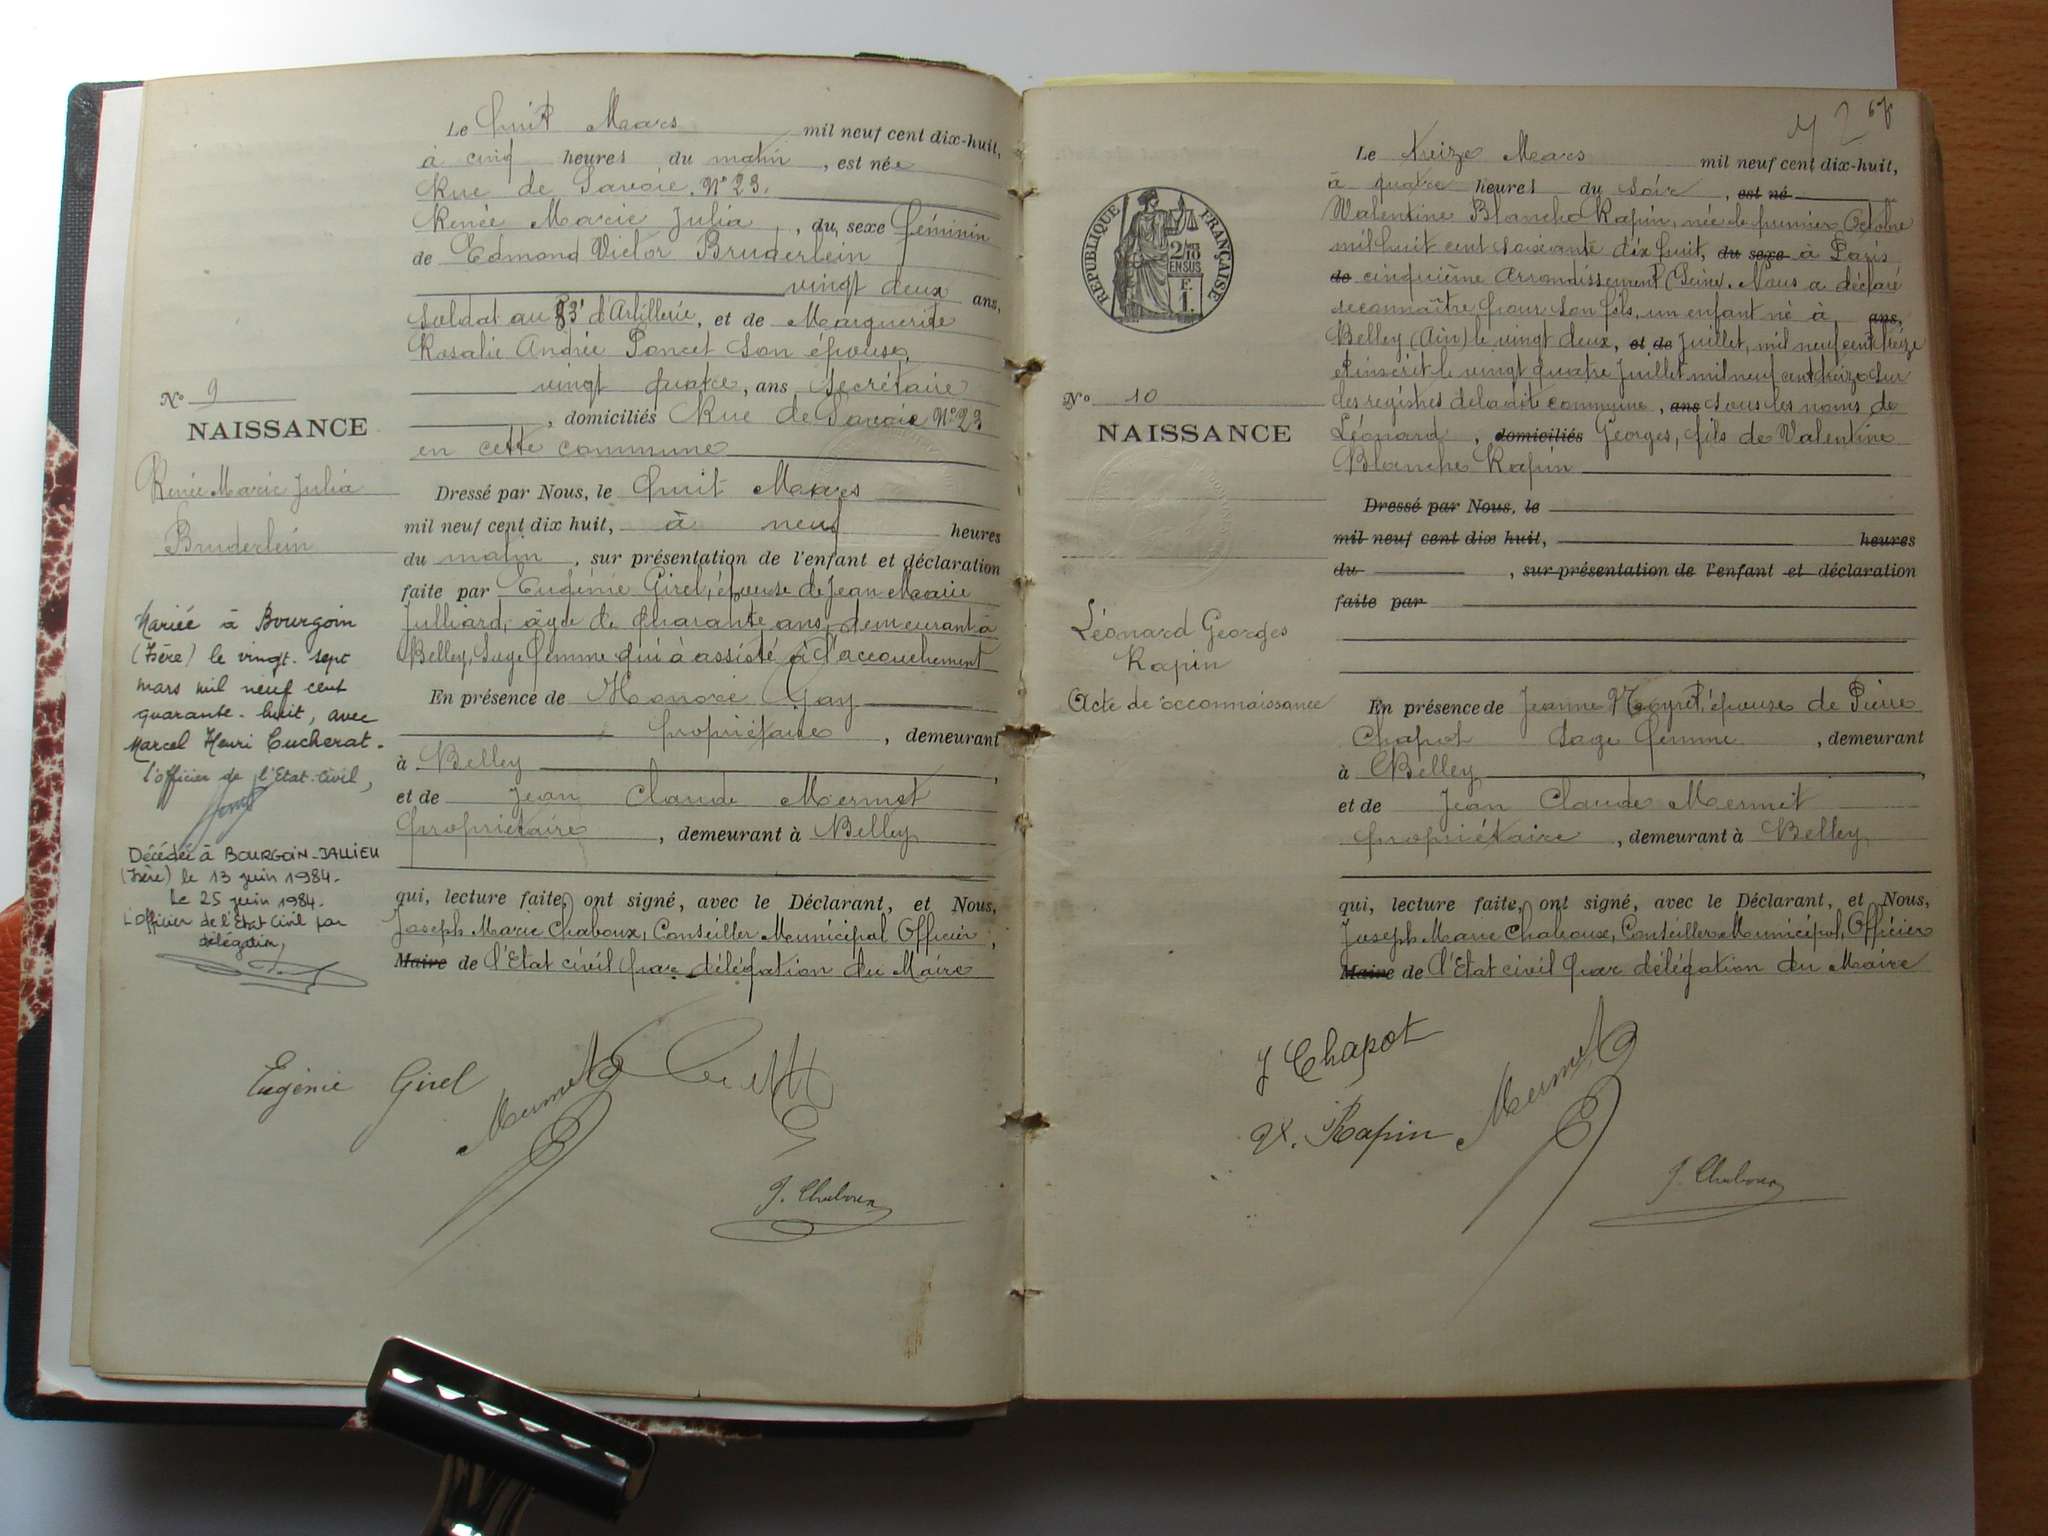 Le huit Mars mil neuf cent dix-huit,
à cinq heures du matin, est née
Rue de Savoie, N° 23.
Renée Marie Julia, du sexe féminin
de Edmond Victor Bruderlein
vingt deux ans,
soldat au 83e d'Artillerie, et de Marguerite
Rosalie Andrée Poncet son épouse,
vingt quatre, ans Secrétaire
, domiciliés Rue de Savoie N° 23
en cette commune
N° 9
NAISSANCE
Renée Marie Julia
Bruderlein
Dressé par Nous, le huit Mars
mil neuf cent dix huit, à neuf heures
du matin, sur présentation de l'enfant et déclaration
faite par Eugénie Girel, épouse de Jean Marie
Julliard, âgée de quarante ans, demeurant à
Belley, Sage femme qui a assisté à l'accouchement
En présence de Honoré Gay
propriétaire, demeurant
à Belley,
et de Jean Claude Mermet
propriétaire, demeurant à Belley
qui, lecture faite, ont signé, avec le Déclarant, et Nous,
Joseph Marie Chaboux, Conseiller Municipal Officier,
Maire de l'Etat civil par délégation du Maire
Mariée à Bourgoin
(Isère) le vingt-sept
mars mil neuf cent
quarante-huit, avec
Marcel Henri Cucherat.
L'officier de l'Etat-Civil,
Décédée à BOURGOIN-JALLIEU
(Isère) le 13 juin 1984.
Le 25 juin 1984.
L'Officier de l'Etat Civil par
délégation,
Eugénie Girel
Mermet
J. Chaboux
67
2
RÉPUBLIQUE FRANÇAISE
2/10
EN SUS
F.
1.
Le treize Mars mil neuf cent dix-huit,
à quatre heures du soir, est né
Valentine Blanche Rapin, née le premier Octobre
mil huit cent soixante dix huit, du sexe à Paris
de cinquième Arrondissement (Seine. Nous a déclaré
reconnaître pour son fils, un enfant né à ans,
Belley (Ain) le vingt deux, et de Juillet, mil neuf cent treize
et inscrit le vingt quatre Juillet mil neuf cent treize sur
les registres de la dite commune, ans sous les noms de
Léonard, domiciliés Georges, fils de Valentine
Blanche Rapin
N° 10
NAISSANCE
Léonard Georges
Rapin
Acte de reconnaissance
Dressé par Nous, le
mil neuf cent dix huit, heures
du , sur présentation de l'enfant et déclaration
faite par
En présence de Jeanne épouse de Pierre
Chapot Sage femme, demeurant
à Belley,
et de Jean Claude Mermet
propriétaire, demeurant à Belley
qui, lecture faite, ont signé, avec le Déclarant, et Nous,
Joseph Marie Chaboux, Conseiller Municipal, Officier
Maire de l'Etat civil par délégation du Maire
J Chapot
V. Rapin
Mermet
J. Chaboux